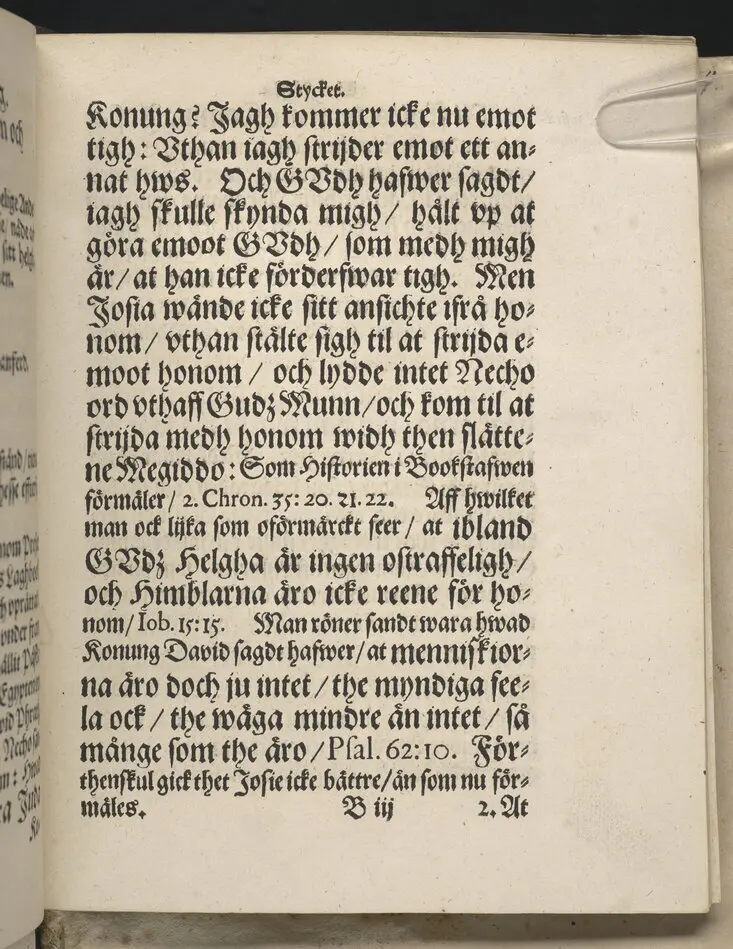 Stycket.
Konung? Jagh kommer icke nu emot
tigh: Vthan iagh strijder emot ett an-
nat hws. Och GVdh hafwer sagdt/
iagh skulle skynda migh/ hålt vp at
göra emoot GVdh/ som medh migh
är/ at han icke förderfwar tigh. Men
Josia wände icke sitt ansichte ifrå ho-
nom/ vthan stälte sigh til at strijda e-
moot honom/ och lydde intet Necho
ord vthaff Gudz Munn/och kom til at
strijda medh honom widh then slätte-
ne Megiddo: Som Historien i Bookstafwen
förmäler/ 2. Chron. 35: 20. 21. 22. Aff hwilket
man ock lijka som oförmärckt seer/ at ibland
GVdz Helgha är ingen ostraffeligh/
och Himblarna äro icke reene för ho-
nom/ Iob. 15: 15. Man röner sandt wara hwad
Konung David sagdt hafwer/ at menniskior-
na äro doch ju intet/ the myndiga fee-
la ock/ the wäga mindre än intet/ så
månge som the äro/ Psal. 62: 10. För-
thenskul gick thet Josie icke bättre/än som nu för-
mäles. B iij 2. At
nom
Necho